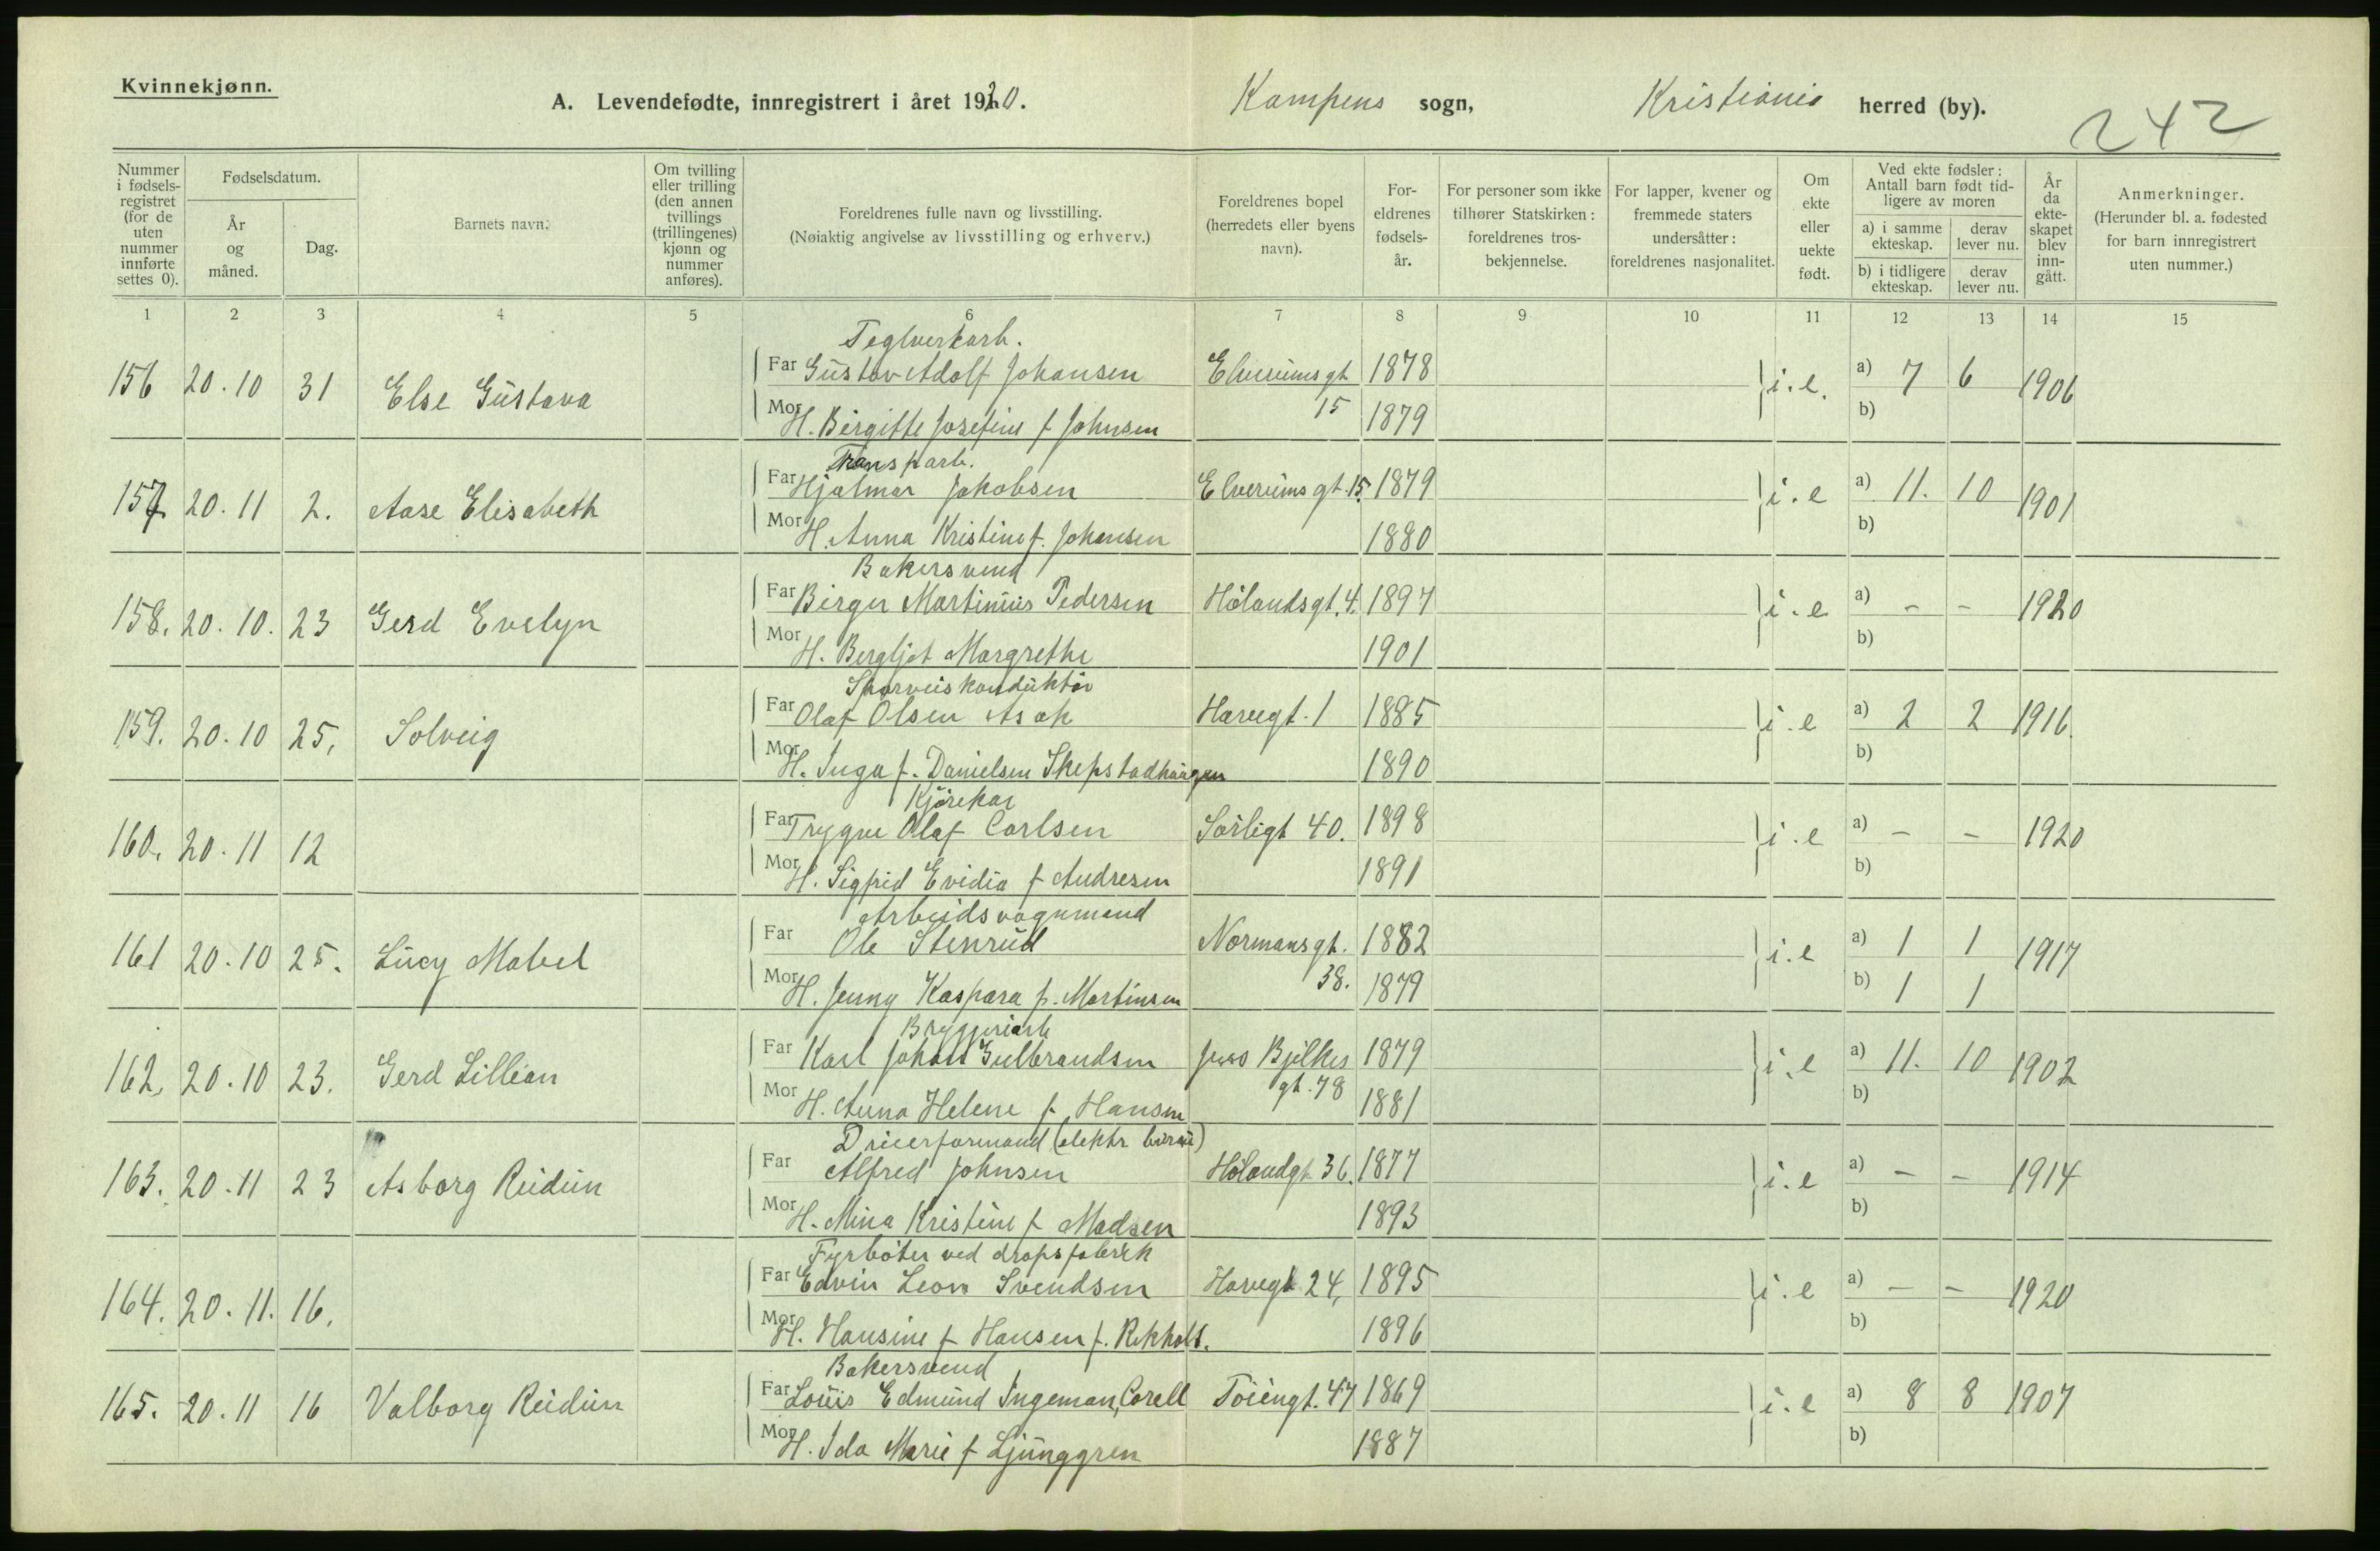 Kvinnekjønn.
A. Levendefødte, innregistrert i året 1920. Kampens sogn, Kristiania herred (by).
242
Nummer i fødsels-registret (for de uten nummer innførte settes 0).
Fødselsdatum.
År og måned.
Dag.
Barnets navn.
Om tvilling eller trilling (den annen tvillings (trillingenes) kjønn og nummer anføres).
Foreldrenes fulle navn og livsstilling.
(Nøiaktig angivelse av livsstilling og erhverv.)
Foreldrenes bopel (herredets eller byens navn).
For-eldrenes fødsels-år.
For personer som ikke tilhører Statskirken: foreldrenes tros-bekjennelse.
For lapper, kvener og fremmede staters undersåtter: foreldrenes nasjonalitet.
Om ekte eller uekte født.
Ved ekte fødsler: Antall barn født tid-ligere av moren
a) i samme ekteskap. derav lever nu.
b) i tidligere ekteskap. derav lever nu.
År da ekte-skapet blev inn-gått.
Anmerkninger.
(Herunder bl. a. fødested for barn innregistrert uten nummer.)
1 2 3 4 5 6 7 8 9 10 11 12 13 14 15
Teglverkarb.
156 20.10 31 Else Gustava Far Gustav Adolf Johansen Elverumsgt 1878 i.e. a) 7 6 1906
Mor H. Birgitte Josefine f Johnsen 15 1879 b)
Transparb.
157. 20.11 2. Aase Elisabeth Far Hjalmar Jakobsen Elverumsgt.15. 1879 i.e a) 11. 10 1901
Mor H. Anna Kristine f. Johansen 1880 b)
Bakersvend
158. 20.10. 23 Gerd Evelyn Far Birger Martinius Pedersen Hølandsgt.4. 1897 i.e a) - - 1920
Mor H. Bergljot Margrethe 1901 b)
Sporveiskonduktør
159. 20.10 25. Solveig Far Olaf Olsen Asak Havegt.1 1885 i.e a) 2 2 1916.
Mor H. Inga f. Danielsen Skepstadhaugen 1890 b)
Kjørekar
160. 20.11 12 Far Trygve Olaf Carlsen Sørligt 40. 1898 i.e a) - - 1920
Mor H. Sigfrid Evidia f Andresen 1891 b)
Arbeidsvognmand
161 20.10 25. Lucy Mabel Far Ole Stenrud Normansgt. 1882 i.e a) 1 1 1917
Mor H. Jenny Kaspara f. Martinsen 38. 1879 b) 1 1
Bryggeriarb
162. 20.10 23. Gerd Lillian Far Karl Johan Gulbrandsen Jens Bjelkes 1879 i.e a) 11. 10 1902
Mor H. Anna Helene f Hansen gt.78 1881 b)
Drieerformand (elektr bureau)
163. 20.11 23 Asborg Reidun Far Alfred Johnsen Hølandgt 36. 1877 i.e a) - - 1914
Mor H. Mina Kristine f Madsen 1893 b)
Fyrbøter ved dropsfabrik
164. 20.11. 16. Far Edvin Leon Svendsen Havegt 24, 1895 i.e a) - - 1920
Mor H. Hansine f Hansen f. Rekholt. 1896 b)
Bakersvend
165. 20.11 16 Valborg Reidun Far Louis Edmund Ingeman, Corell Tøiengt.47 1869 i.e a) 8 8 1907
Mor H. Ida Marie f Ljunggren 1887 b)